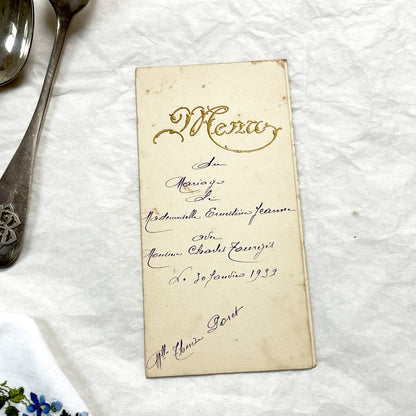 Menu
du
Mariage
de
Mademoiselle Ernestine Jeanne
avec
Monsieur Charles
Le 30 Janvier 1933
Mlle Poret